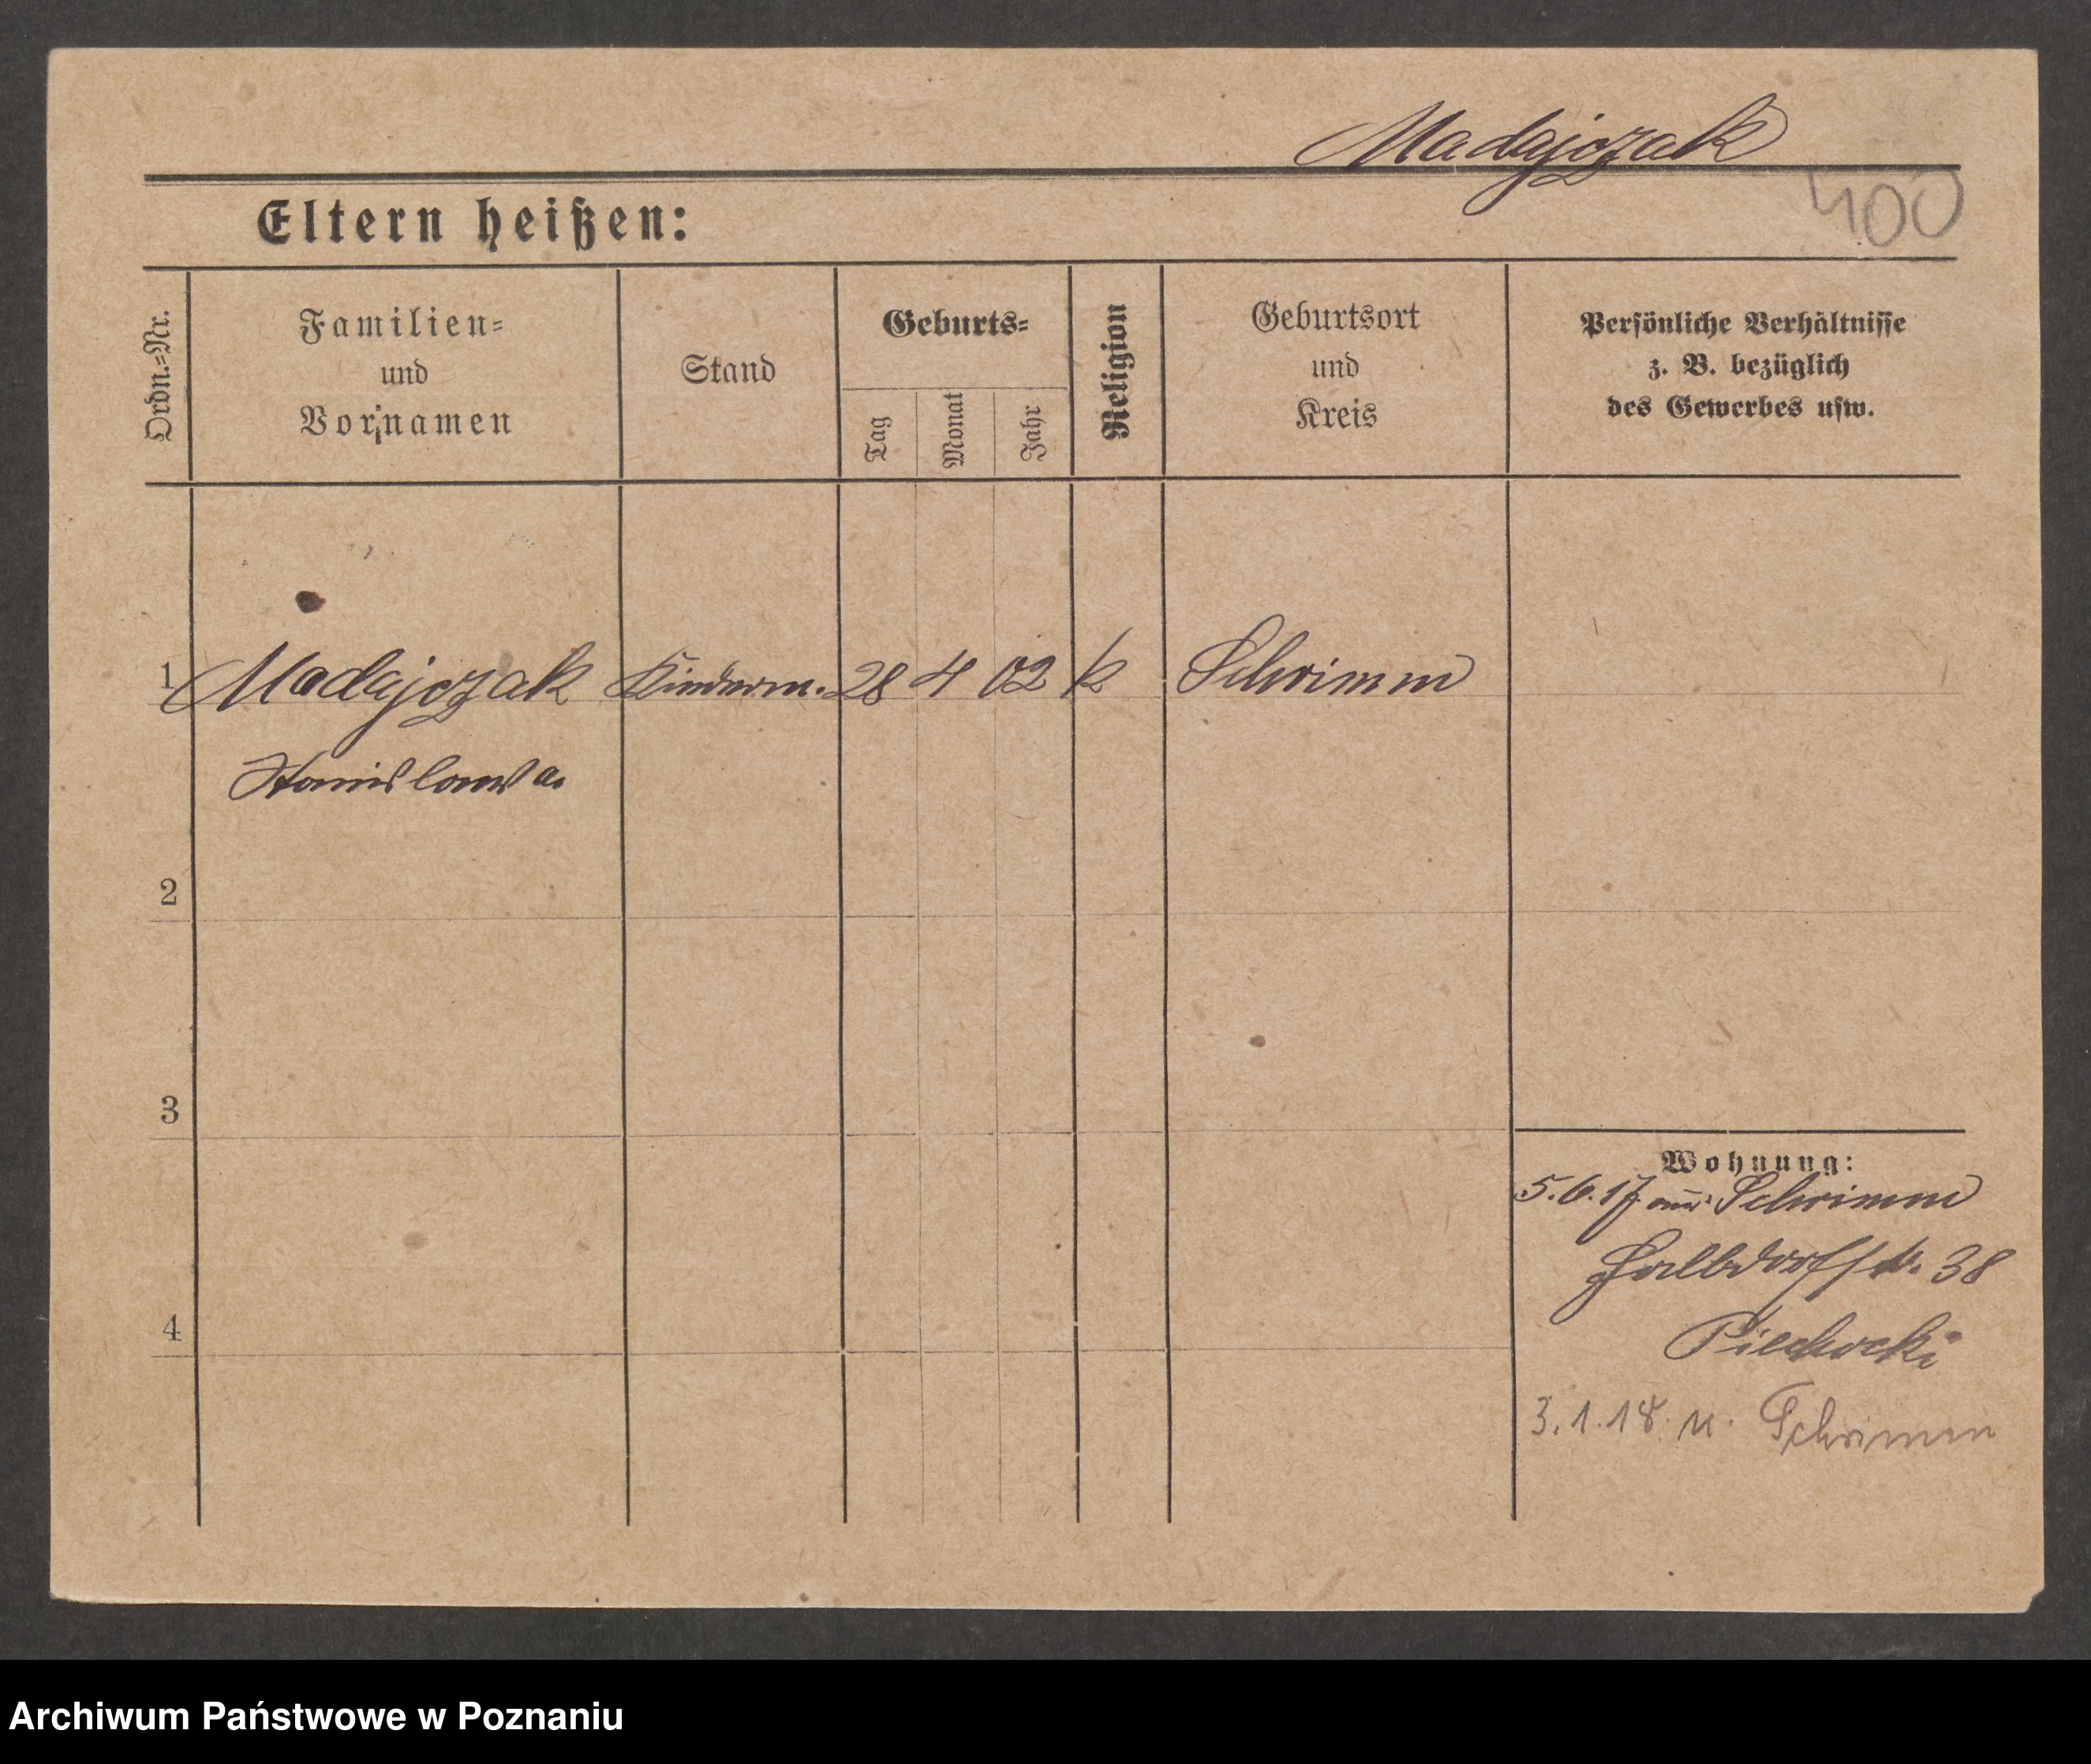 Madajczak
400
Eltern heißen:
Ordn.=Nr.
Familien=
und
Vornamen
Stand
Geburts=
Tag
Monat
Jahr
Religion
Geburtsort
und
Kreis
Persönliche Verhältnisse
z. B. bezüglich
des Gewerbes usw.
1 Madajczak Kinderm. 28 4 02 k Schrimm
Stanislawa
2
3
4
Wohnung:
5.6.17 aus Schrimm
38
Piechocki
3.1.18. n. Schrimm
Archiwum Państwowe w Poznaniu